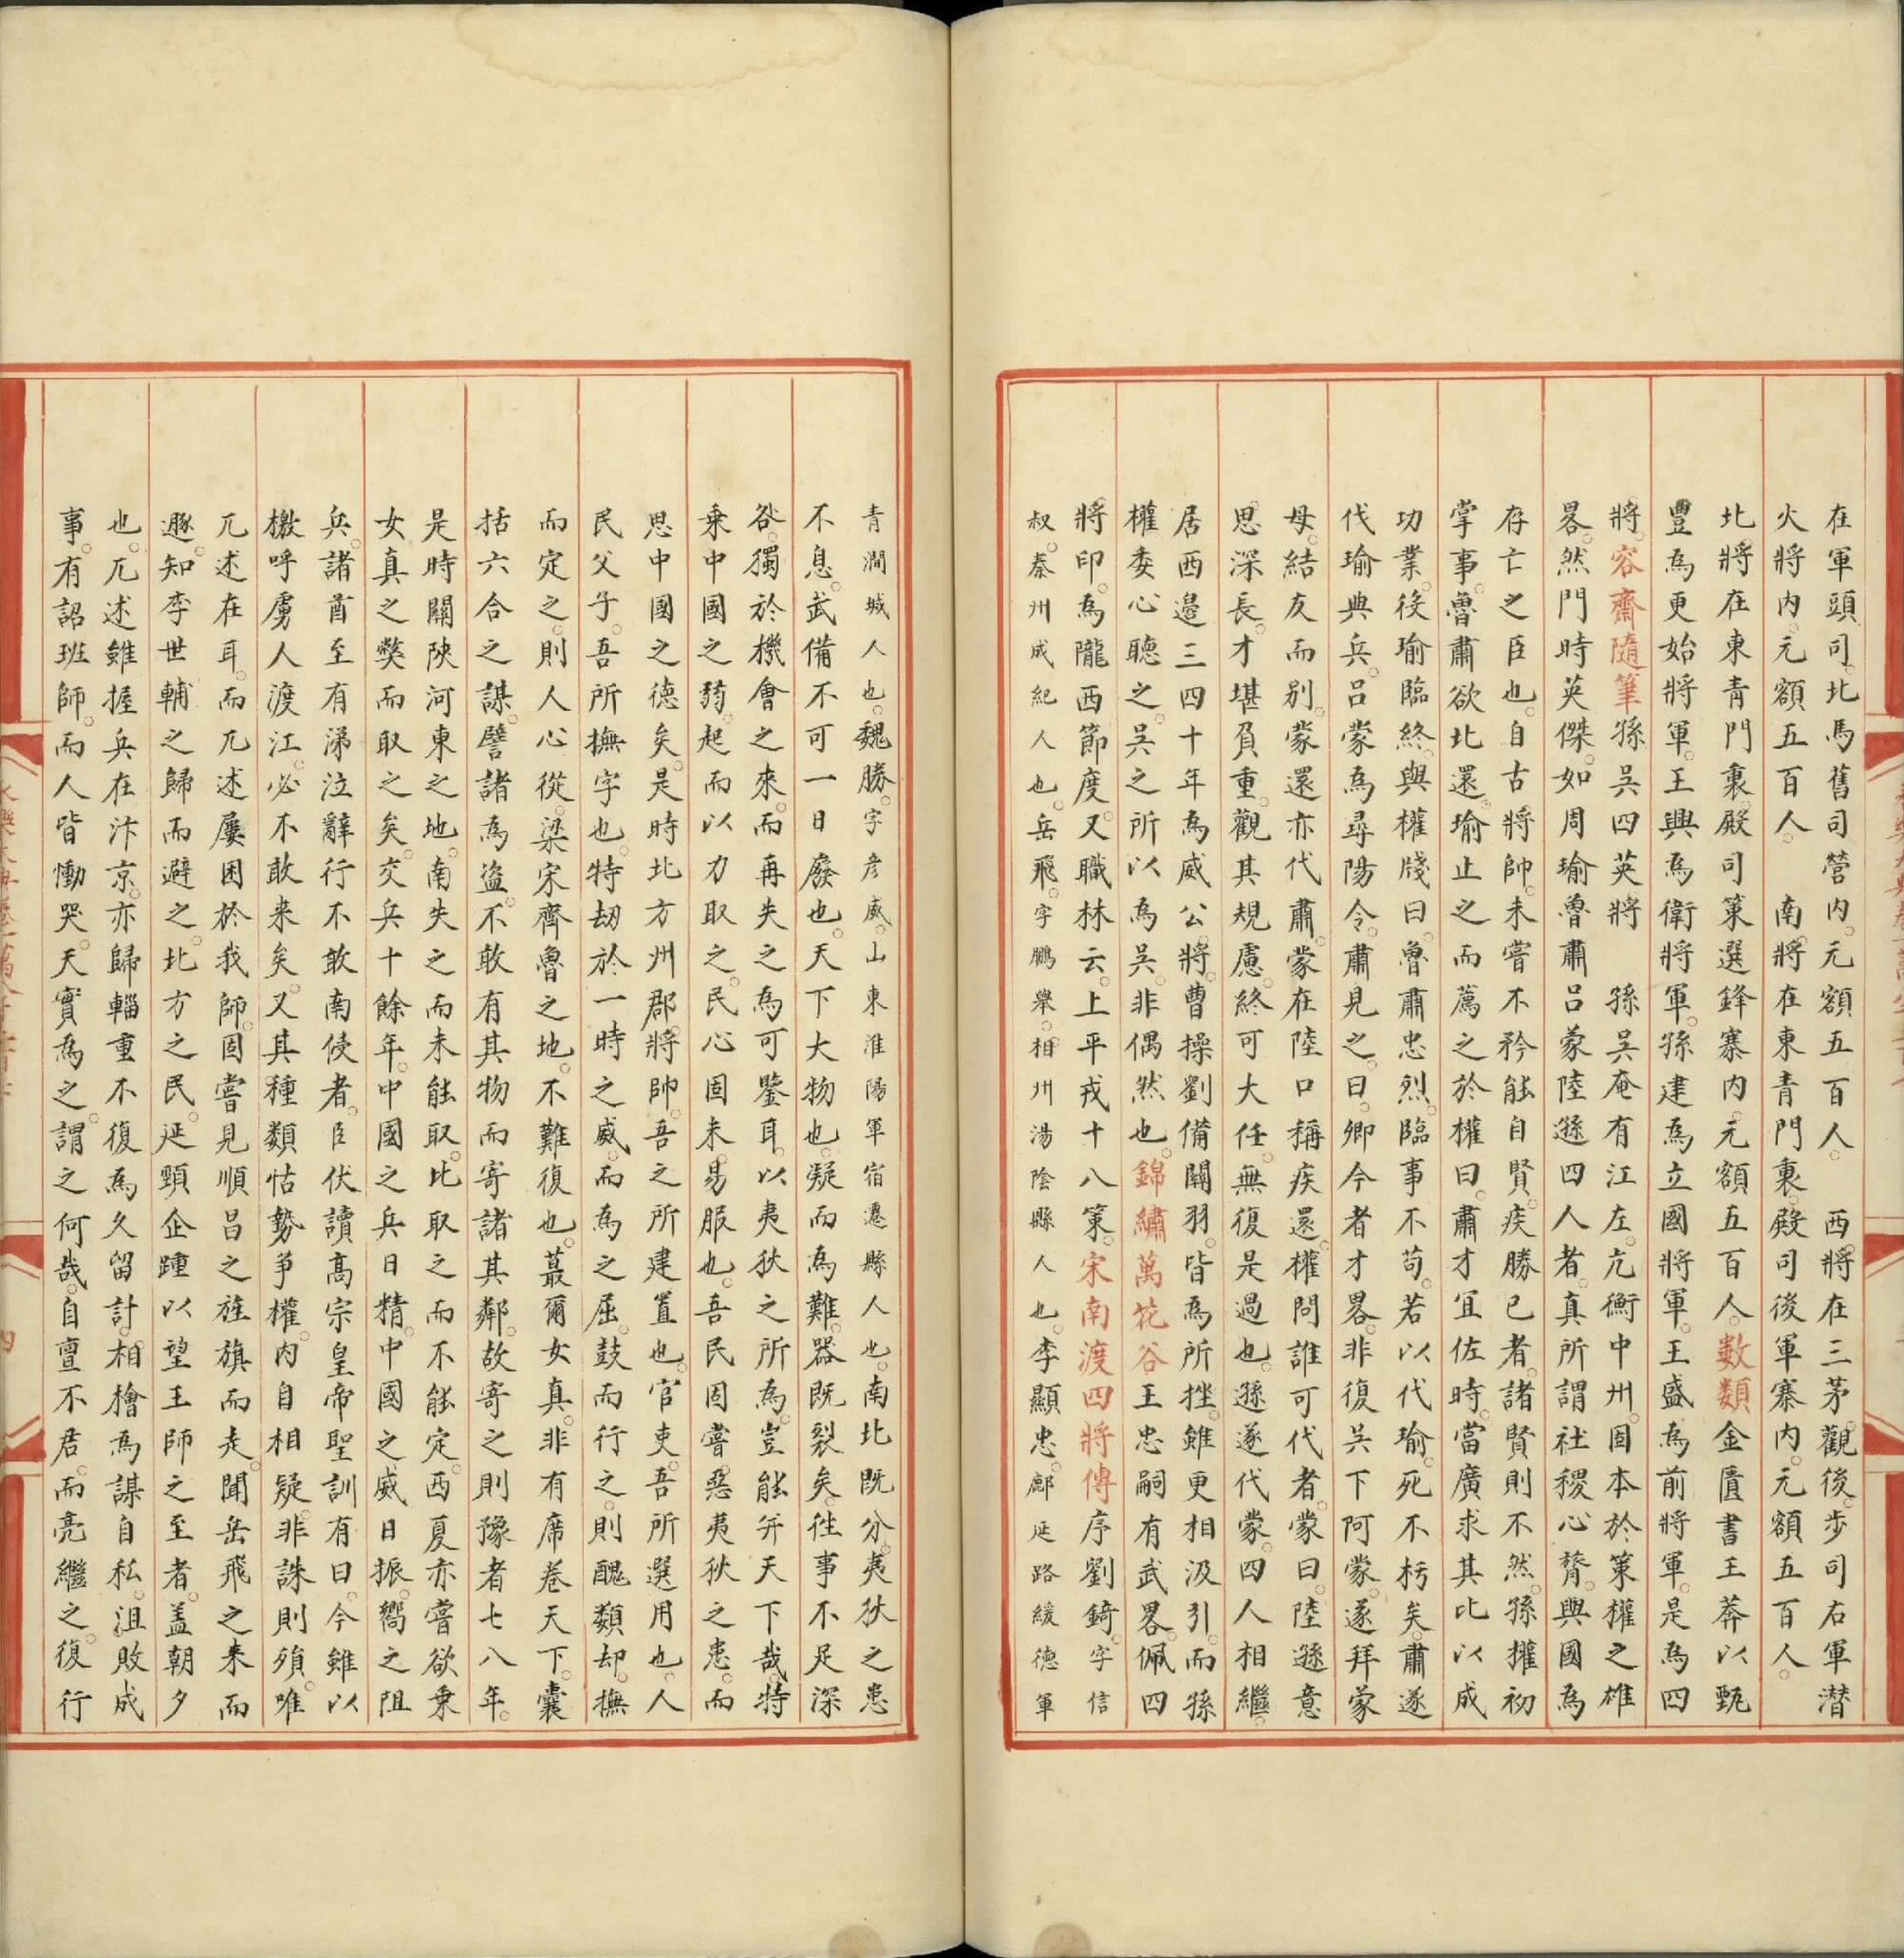 在軍頭司北馬舊司營内元額五百人 西將在三茅觀後步司右軍潜
火將内元額五百人 南將在東青門裏殿司後軍寨内元額五百人
北將在東青門裏殿司策選鋒寨内元額五百人數類金匱書王莽以甄
豐為更始將軍王興為衛將軍孫建為立國將軍王盛為前將軍是為四
將容齋隨筆孫吳四英將 孫吳奄有江左亢衡中州固本於策權之雄
畧然門時英傑如周瑜魯肅吕蒙陸遜四人者真所謂社稷心膂與國為
存亡之臣也自古將帥未嘗不矜能自賢疾勝已者諸賢則不然孫權初
掌事魯肅欲北還瑜止之而薦之於權曰肅才宜佐時當廣求其比以成
功業後瑜臨終與權牋曰魯肅忠烈臨事不苟若以代瑜死不朽矣肅遂
代瑜典兵吕蒙為尋陽令肅見之曰卿今者才畧非復吳下阿蒙遂拜蒙
母結友而别蒙還亦代肅蒙在陸口稱疾還權問誰可代者蒙曰陸遜意
思深長才堪負重觀其規慮終可大任無復是過也遜遂代蒙四人相繼
居西邉三四十年為威公將曹操劉備關羽皆為所挫雖更相汲引而孫
權委心聽之吳之所以為吳非偶然也錦繡萬花谷王忠嗣有武畧佩四
將印為隴西節度又職林云上平戎十八策宋南渡四將傳序劉錡字信
叔秦州成紀人也岳飛字鵬舉相州湯陰縣人也李顯忠鄜延路綏德軍
青澗城人也魏勝字彦威山東淮陽軍宿遷縣人也南北既分夷狄之患
不息武備不可一日廢也天下大物也凝而為難器既裂矣徃事不足深
咎獨於機會之來而再失之為可鑒耳以夷狄之所為豈能弃天下哉特
乗中國之弱起而以力取之民心固未易服也吾民固嘗惡夷狄之患而
思中國之德矣是時北方州郡將帥吾之所建置也官吏吾所選用也人
民父子吾所撫字也特刼於一時之威而為之屈鼓而行之則醜纇却撫
而定之則人心從梁宋齊魯之地不難復也蕞爾女真非有席卷天下囊
括六合之謀譬諸為盗不敢有其物而寄諸其鄰故寄之則豫者七八年
是時關陝河東之地南失之而未能取比取之而不能定西夏亦嘗欲乗
女真之獘而取之矣交兵十餘年中國之兵日精中國之威日振嚮之阻
兵諸酋至有涕泣辭行不敢南侵者臣伏讀高宗皇帝聖訓有曰今雖以
檄呼虜人渡江必不敢來矣又其種類怙勢争權内自相疑非誅則殞唯
兀述在耳而兀述屢困於我師固嘗見順昌之旌旗而走聞岳飛之来而
遯知李世輔之歸而避之北方之民延頸企踵以望王師之至者盖朝夕
也兀述雖握兵在汴京亦歸輜重不復為久留計相檜為謀自私沮敗成
事有詔班師而人皆慟哭天實為之謂之何哉自亶不君而亮繼之復行